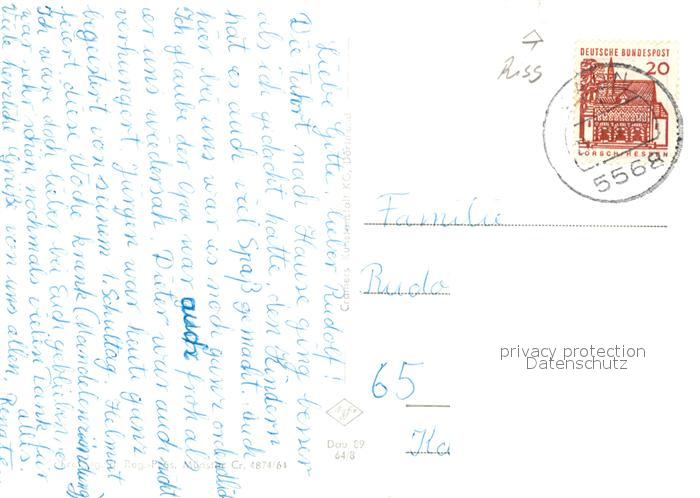 Liebe Gitte! Lieber Rudolf!
Die Fahrt nach Hause ging besser
als ich gedacht hatte, den Kindern
hat es auch viel Spaß gemacht. Auch
hier bei uns war es noch ganz ordentlich
Ich glaube der Opa war auch froh als
er uns wiedersah. Dieter war auch nicht
verhungert. Jürgen war heute ganz
begeistert von seinem 1. Schultag. Helmut
feiert diese Woche krank (Mandelentzündung)
Ich wäre doch lieber bei Euch geblieben es
war sehr schön, nochmals vielen Dank für alles.
Viele herzliche Grüße von uns allen, Renate
Cramers Kunstanstalt KG, Dortmund
Dau 89
64/8
Reg.-Präs. Münster Cr. 4874/64
Riss
DEUTSCHE BUNDESPOST
20
LORSCH HESSEN
5568
Familie
Rudo
65
Ka
privacy protection
Datenschutz